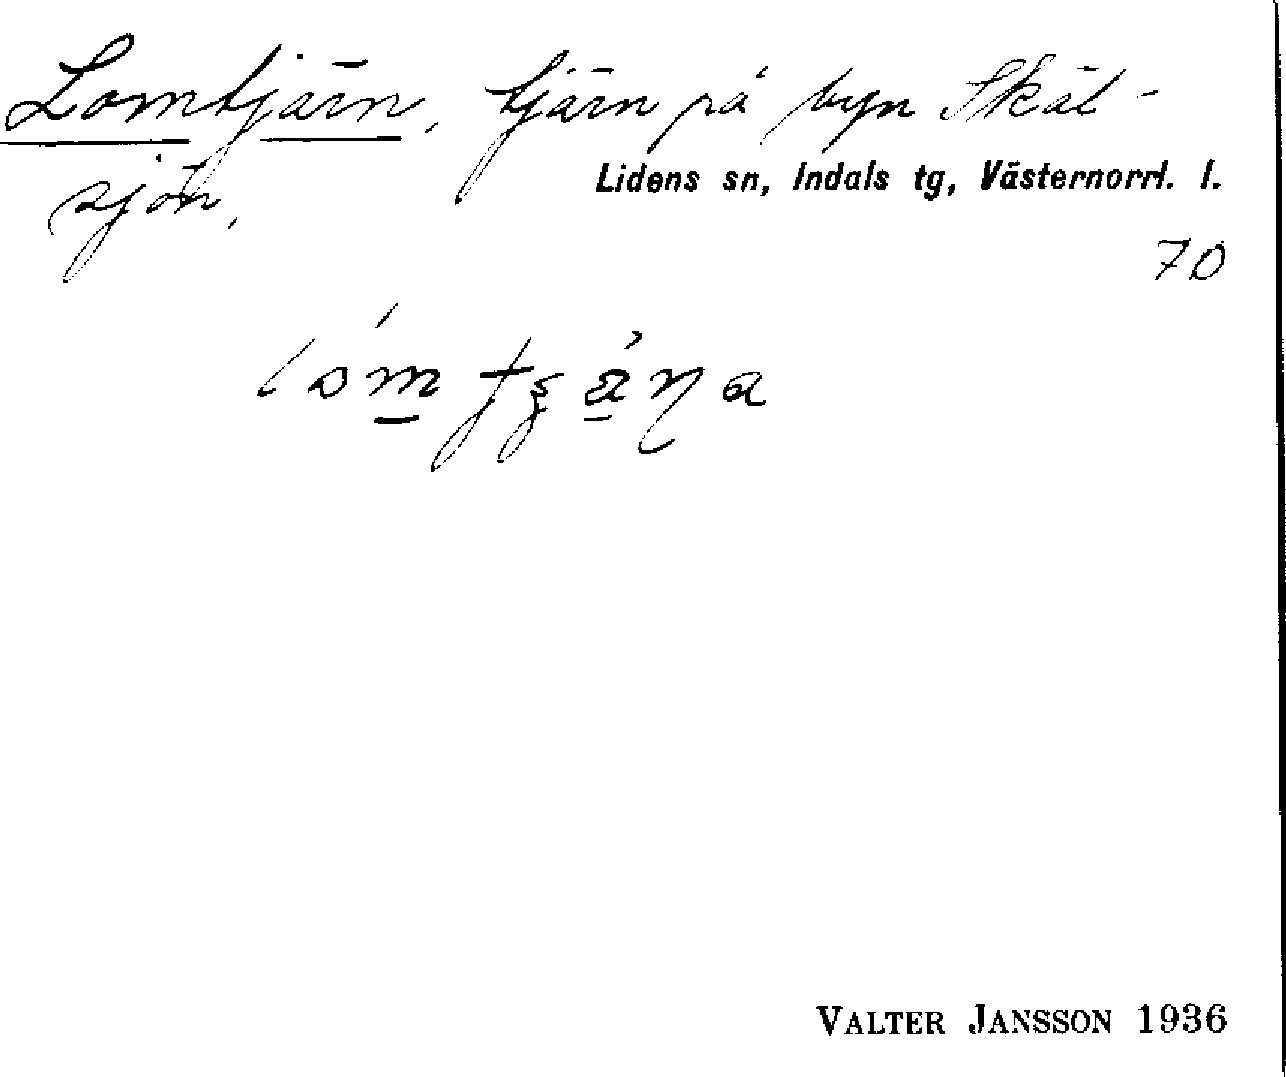 Lomtjärn, tjärn på byn Skäl-
sjön,
Lidens sn, Indals tg, Västernorrl. l.
70
VALTER JANSSON 1936